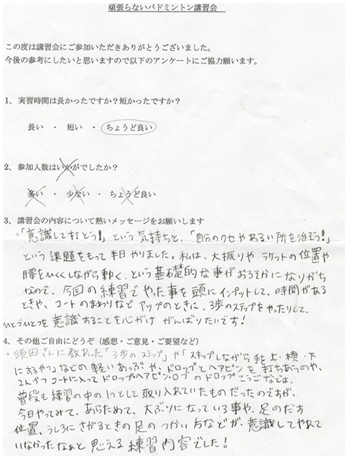 頑張らないバドミントン講習会
この度は講習会にご参加いただきありがとうございました。
今後の参考にしたいと思いますので以下のアンケートにご協力願います。
1、実習時間は長かったですか？短かったですか？
長い ・ 短い ・ ちょうど良い
2、参加人数はいかがでしたか？
多い ・ 少ない ・ ちょうど良い
3、講習会の内容について熱いメッセージをお願いします
・「意識して打とう！」という気持ちと、「自分のクセやあるい所を治そう！」
という課題をもって本日やりました。私は、大振りや ラケットの位置や
腰をひくくしながら動く、という基礎的な事がおろそかになりがち
なので、今回の練習でやった事を頭にインプットして、時間がある
ときや、コートのまわりなどアップのときに、3歩のステップをやったりして、
いっこいっこを意識することを心がけ がんばりたいです！
4、その他ご自由にどうぞ（感想・ご意見・ご要望など）
・須田さんに教わった「3歩のステップ」や「スキップしながら 手を上・横・下
にするやつ」などの軽いあっぷや、ドロップとヘアピンを打ちあうのや、
2人ずつコートに入ってドロップ・ヘアピン・ロブ の ドロップこうごなどは、
普段も練習の中の1つとして取り入れていたものだったのですが、
今日やってみて、あらためて、大ぶりになっている事や、足のだす
位置、うしろにさがるときの足の つかい方などが、意識してやれて
いなかったなぁと 思える 練習内容でした！